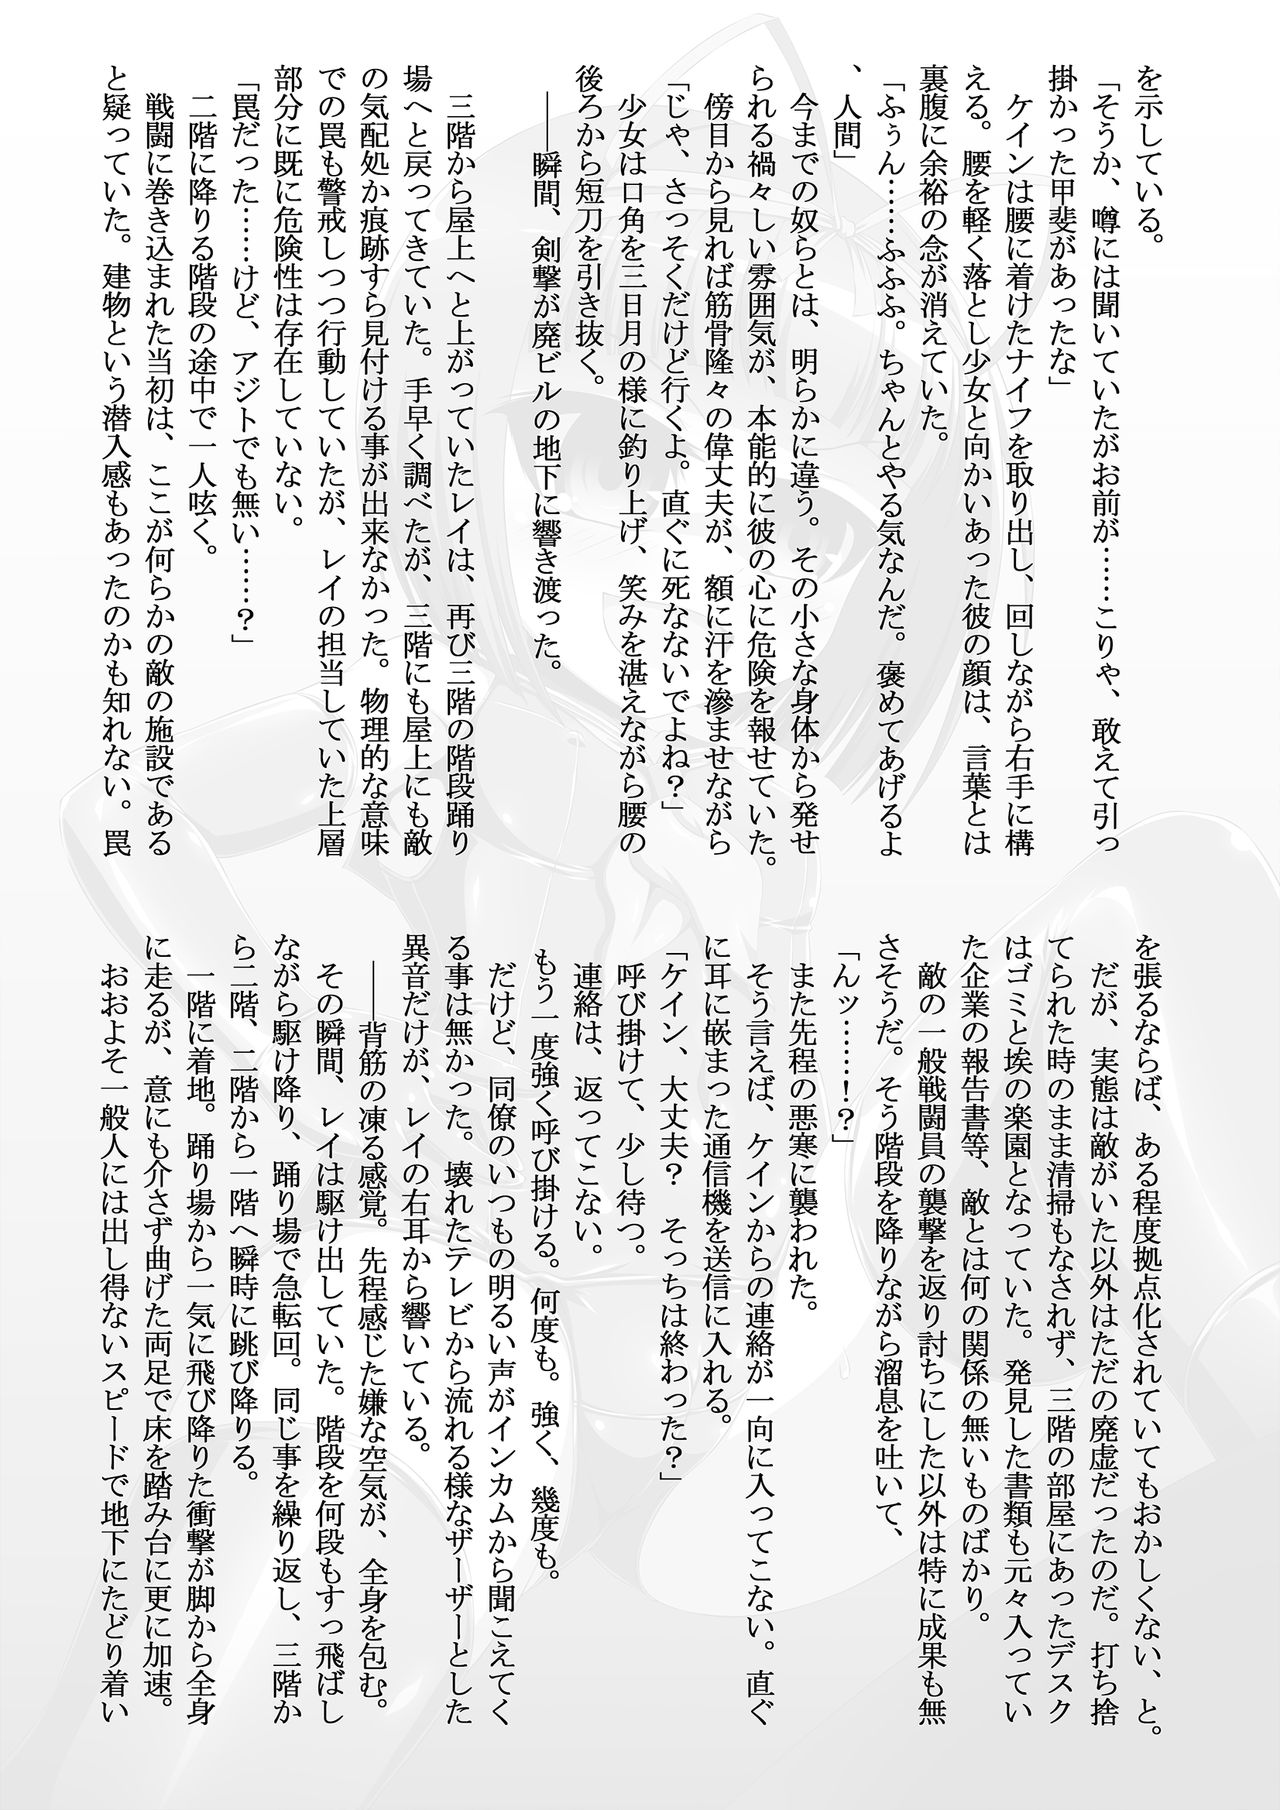 を示している。
「そうか、噂には聞いていたがお前が……こりゃ、敢えて引っ
掛かった甲斐があったな」
　ケインは腰に着けたナイフを取り出し、回しながら右手に構
える。腰を軽く落とし少女と向かいあった彼の顔は、言葉とは
裏腹に余裕の念が消えていた。
「ふぅん……ふふふ。ちゃんとやる気なんだ。褒めてあげるよ
、人間」
　今までの奴らとは、明らかに違う。その小さな身体から発せ
られる禍々しい雰囲気が、本能的に彼の心に危険を報せていた。
　傍目から見れば筋骨隆々の偉丈夫が、額に汗を滲ませながら
「じゃ、さっそくだけど行くよ。直ぐに死なないでよね？」
　少女は口角を三日月の様に釣り上げ、笑みを湛えながら腰の
後ろから短刀を引き抜く。
　――瞬間、剣撃が廃ビルの地下に響き渡った。
　三階から屋上へと上がっていたレイは、再び三階の階段踊り
場へと戻ってきていた。手早く調べたが、三階にも屋上にも敵
の気配処か痕跡すら見付ける事が出来なかった。物理的な意味
での罠も警戒しつつ行動していたが、レイの担当していた上層
部分に既に危険性は存在していない。
「罠だった……けど、アジトでも無い……？」
　二階に降りる階段の途中で一人呟く。
　戦闘に巻き込まれた当初は、ここが何らかの敵の施設である
と疑っていた。建物という潜入感もあったのかも知れない。罠
を張るならば、ある程度拠点化されていてもおかしくない、と。
　だが、実態は敵がいた以外はただの廃虚だったのだ。打ち捨
てられた時のまま清掃もなされず、三階の部屋にあったデスク
はゴミと埃の楽園となっていた。発見した書類も元々入ってい
た企業の報告書等、敵とは何の関係の無いものばかり。
　敵の一般戦闘員の襲撃を返り討ちにした以外は特に成果も無
さそうだ。そう階段を降りながら溜息を吐いて、
「んッ……！？」
　また先程の悪寒に襲われた。
　そう言えば、ケインからの連絡が一向に入ってこない。直ぐ
に耳に嵌まった通信機を送信に入れる。
「ケイン、大丈夫？　そっちは終わった？」
　呼び掛けて、少し待つ。
　連絡は、返ってこない。
　もう一度強く呼び掛ける。何度も。強く、幾度も。
　だけど、同僚のいつもの明るい声がインカムから聞こえてく
る事は無かった。壊れたテレビから流れる様なザーザーとした
異音だけが、レイの右耳から響いている。
　――背筋の凍る感覚。先程感じた嫌な空気が、全身を包む。
　その瞬間、レイは駆け出していた。階段を何段もすっ飛ばし
ながら駆け降り、踊り場で急転回。同じ事を繰り返し、三階か
ら二階、二階から一階へ瞬時に跳び降りる。
　一階に着地。踊り場から一気に飛び降りた衝撃が脚から全身
に走るが、意にも介さず曲げた両足で床を踏み台に更に加速。
　おおよそ一般人には出し得ないスピードで地下にたどり着い